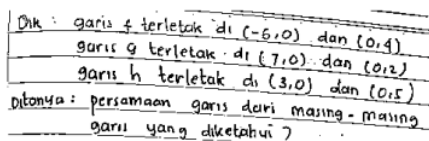 Dik : garis f terletak di (-6,0) dan (0,4)
garis g terletak di (7,0) dan (0,2)
garis h terletak di (3,0) dan (0,5)
Ditanya : persamaan garis dari masing-masing
garis yang diketahui ?